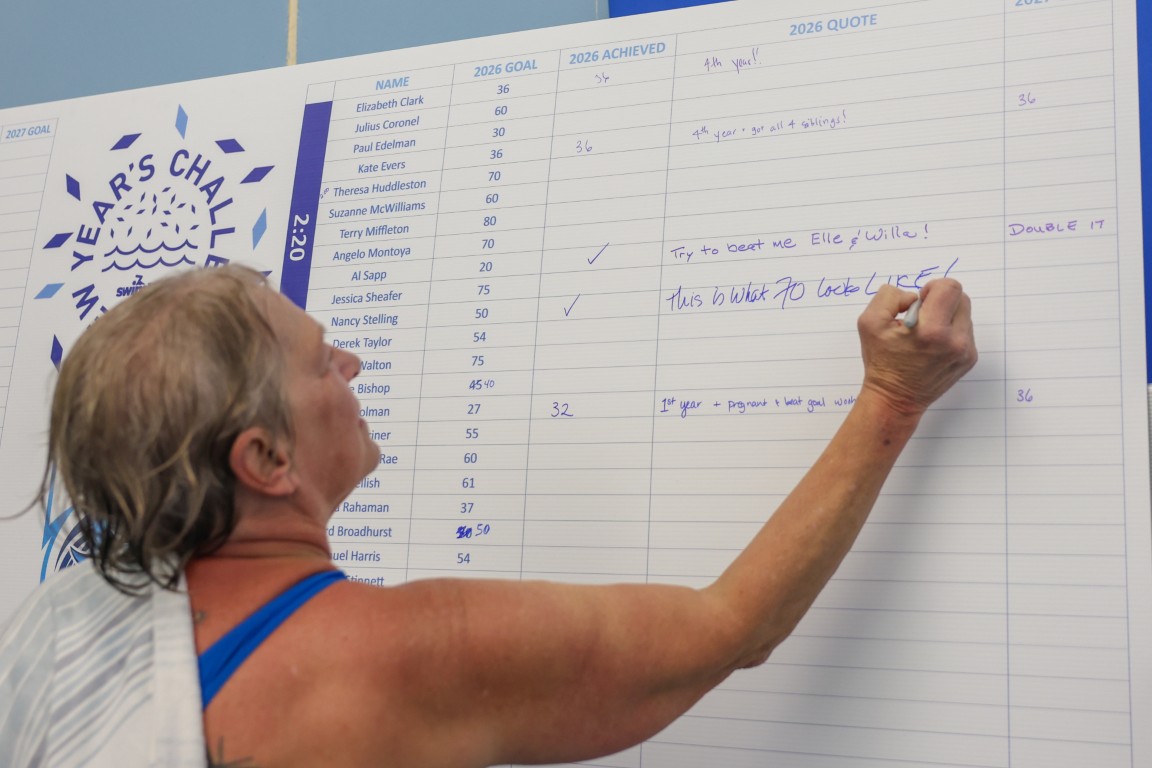 2027 GOAL
YEAR'S CHALLE
SWIM
2:20
NAME 2026 GOAL 2026 ACHIEVED 2026 QUOTE 2027
Elizabeth Clark 36 36 4th year!!
Julius Coronel 60
Paul Edelman 30
Kate Evers 36 36 4th year + got all 4 siblings! 36
Theresa Huddleston 70
Suzanne McWilliams 60
Terry Miffleton 80
Angelo Montoya 70
Al Sapp 20 ✓ Try to beat me Elle & Willa! DOUBLE IT
Jessica Sheafer 75
Nancy Stelling 50 ✓ This is What 70 looks LIKE!
Derek Taylor 54
Walton 75
e Bishop 45 40
olman 27 32 1st year + pregnant + beat goal 36
riner 55
Rae 60
ellish 61
Rahaman 37
d Broadhurst 50
uel Harris 54
Stinnett